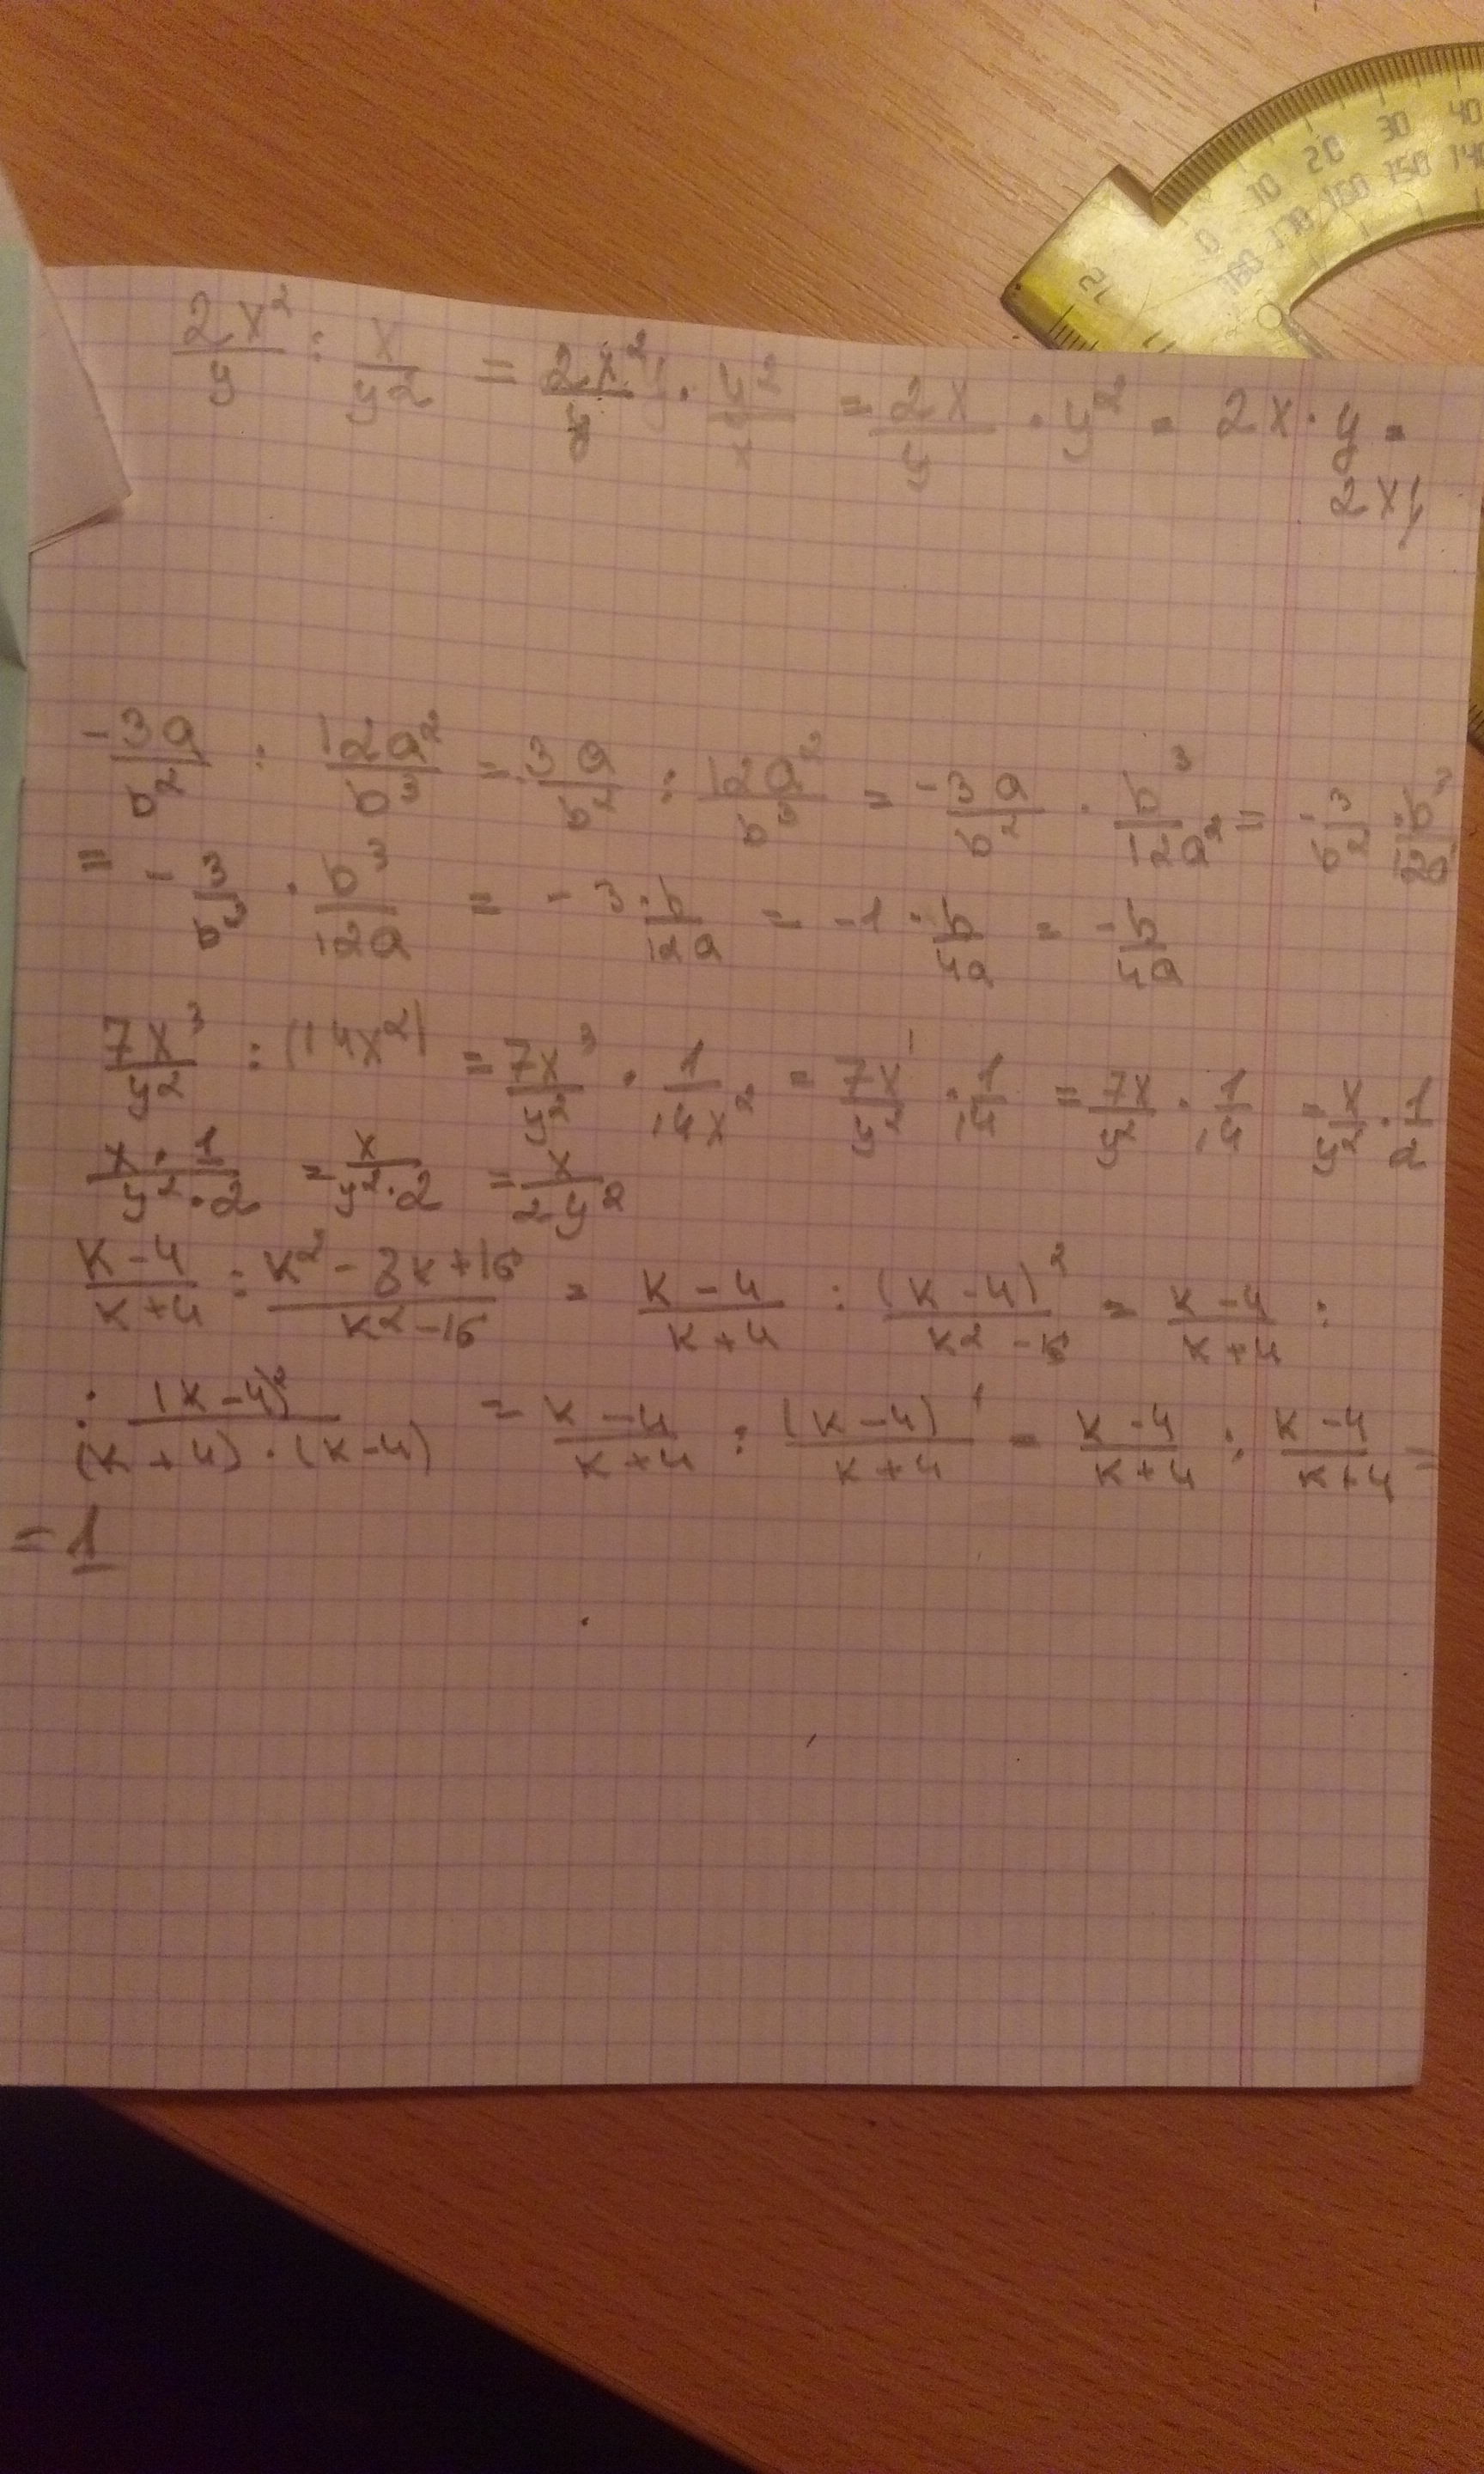 2x²/y : x/y2 = 2x²/y · y²/x = 2x/y · y² = 2x · y =
2xy
-3a/b² : 12a²/b³ = -3a/b² : 12a²/b³ = -3a/b² · b³/12a² = -3/b² · b³/12a
= -3/b³ · b³/12a = -3 · b/12a = -1 · b/4a = -b/4a
7x³/y² : (14x²) = 7x³/y² · 1/14x² = 7x¹/y² · 1/14 = 7x/y² · 1/14 = x/y² · 1/2
x · 1/y² · 2 = x/y² · 2 = x/2y²
k-4/k+4 : k²-8k+16/k²-16 = k-4/k+4 : (k-4)²/k²-16 = k-4/k+4 :
: (k-4)²/(k+4) · (k-4) = k-4/k+4 : (k-4)¹/k+4 = k-4/k+4 : k-4/k+4 =
= 1
0 10 20 30 40
180 170 160 150 140